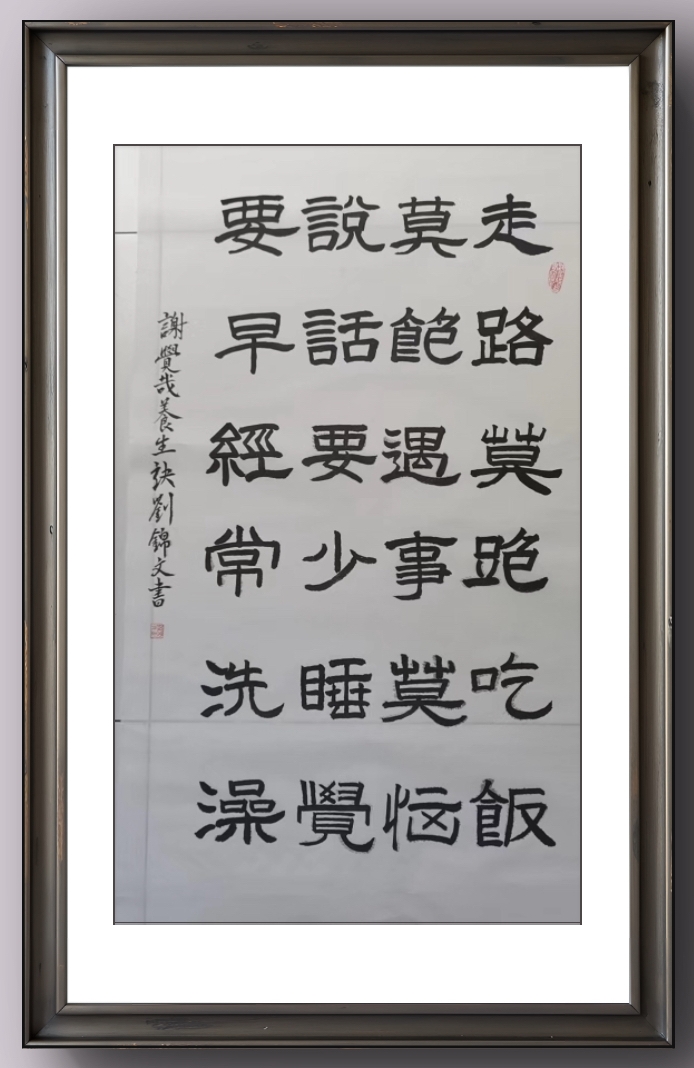 走路莫跑吃飯
莫飽遇事莫恼
說話要少睡覺
要早經常洗澡
謝覺哉養生訣劉錦文書